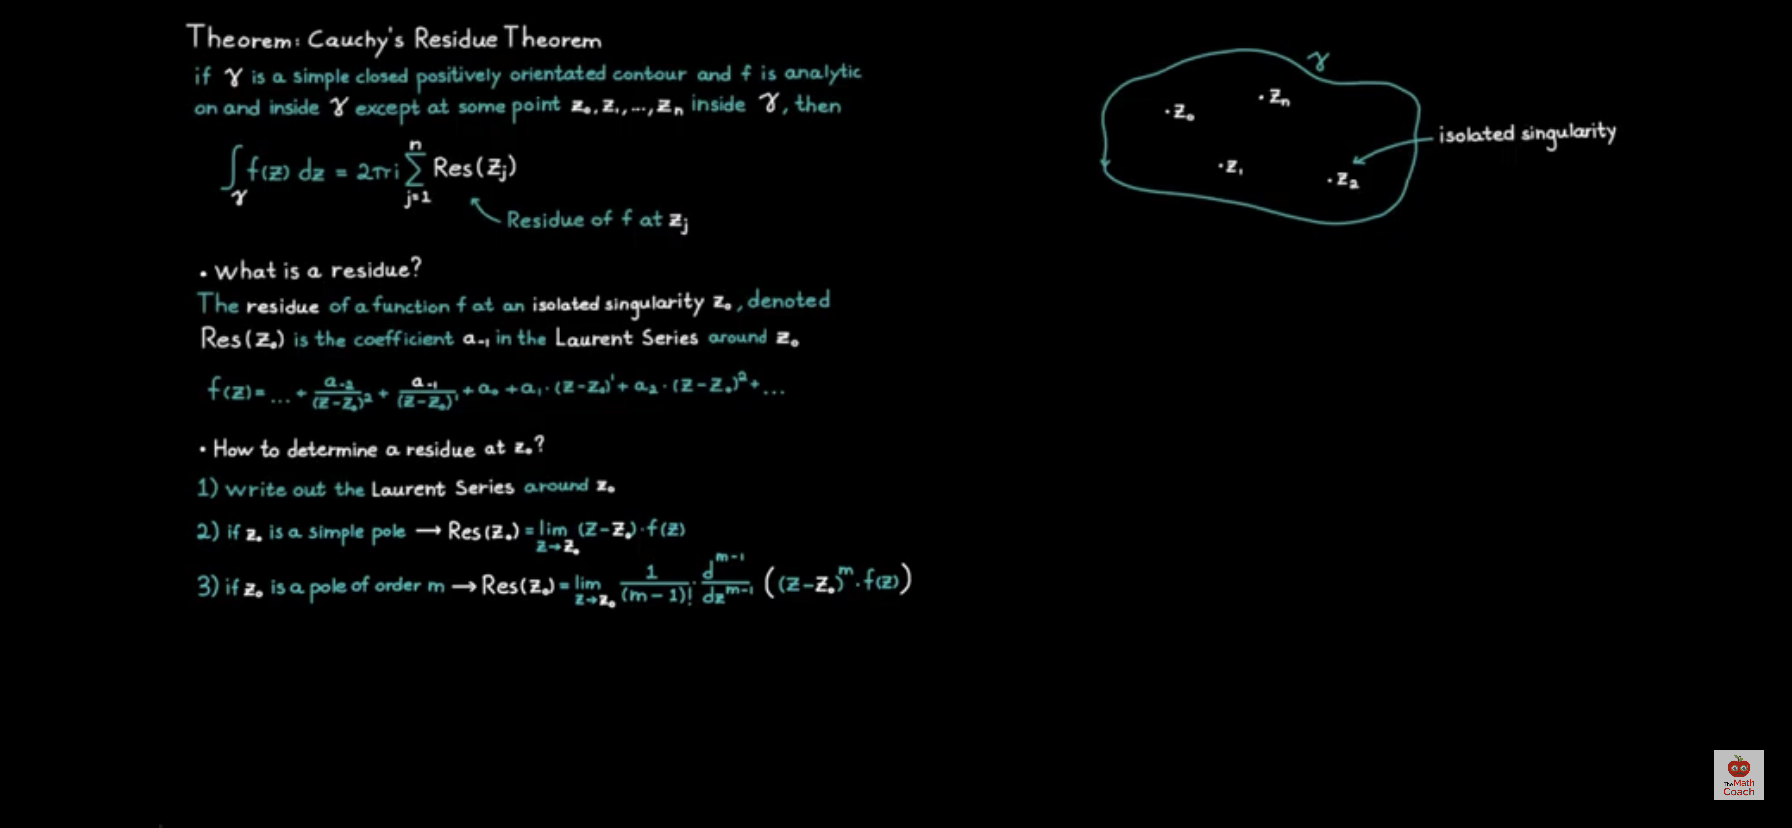 Theorem: Cauchy's Residue Theorem
if γ is a simple closed positively orientated contour and f is analytic
on and inside γ except at some point z₀, z₁, ..., zₙ inside γ, then
∫_γ f(z) dz = 2πi ∑_{j=1}^{n} Res(zⱼ)
Residue of f at zⱼ
• What is a residue?
The residue of a function f at an isolated singularity z₀, denoted
Res(z₀) is the coefficient a₋₁ in the Laurent Series around z₀
f(z) = ... + a₋₂/(z-z₀)² + a₋₁/(z-z₀)¹ + a₀ + a₁·(z-z₀)¹ + a₂·(z-z₀)² + ...
• How to determine a residue at z₀?
1) write out the Laurent Series around z₀
2) if z₀ is a simple pole → Res(z₀) = lim_{z→z₀} (z-z₀)·f(z)
3) if z₀ is a pole of order m → Res(z₀) = lim_{z→z₀} 1/(m-1)! · d^{m-1}/dz^{m-1} ((z-z₀)^m · f(z))
γ
·z₀
·zₙ
·z₁
·z₂
isolated singularity
The Math
Coach